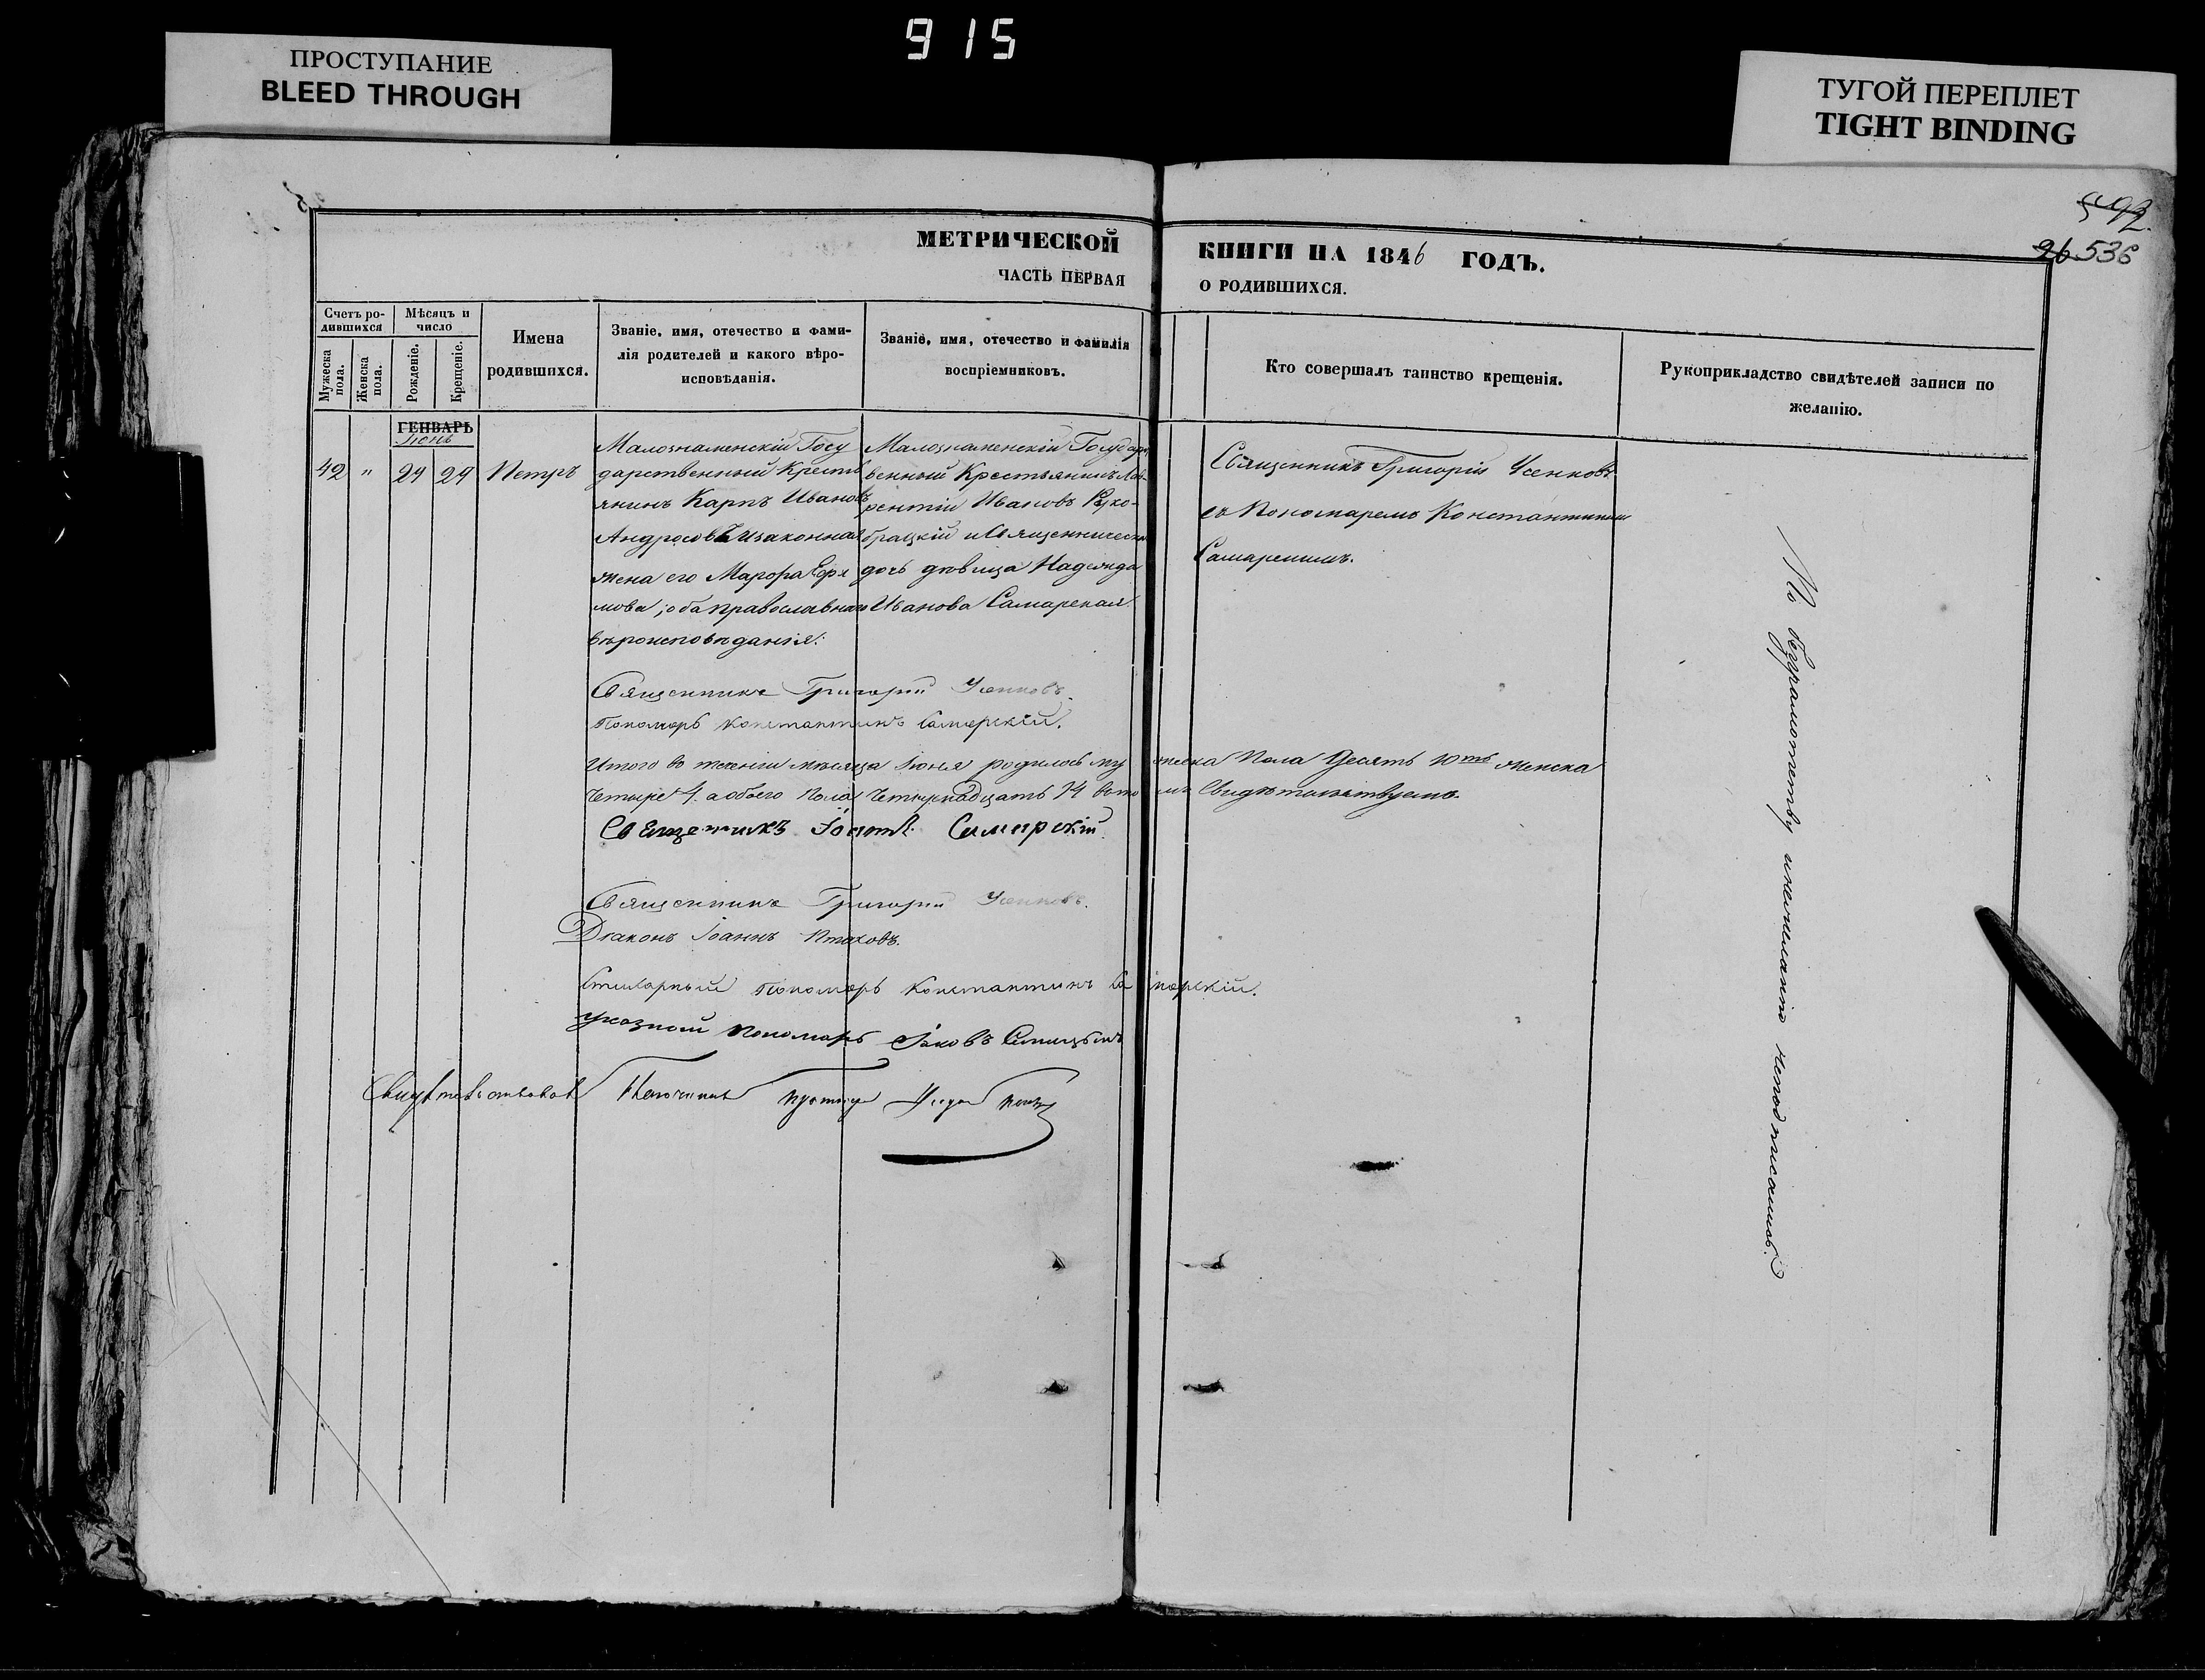 915
ПРОСТУПАНИЕ
BLEED THROUGH
ТУГОЙ ПЕРЕПЛЕТ
TIGHT BINDING
26 536
МЕТРИЧЕСКОЙ КНИГИ НА 1846 ГОДЪ.
ЧАСТЬ ПЕРВАЯ О РОДИВШИХСЯ.
Счетъ ро-
дившихся
Мужеска
пола.
Женска
пола.
Мѣсяцъ и
число
Рожденіе.
Крещеніе.
Имена
родившихся.
Званіе, имя, отечество и фами-
лія родителей и какого вѣро-
исповѣданія.
Званіе, имя, отечество и фамилія
воспріемниковъ.
Кто совершалъ таинство крещенія.
Рукоприкладство свидѣтелей записи по
желанію.
ГЕНВАРЬ
Іюнь
42 " 29 29 Петръ
Малознаменскій Госу
дарственный Кресть
янинъ Карпъ Ивановъ
Андросовъ и законная
жена его Марфа Ефи
мова; оба православнаго
вѣроисповѣданія:
Малознаменскій Государ
венный Крестьянинъ Лав-
рентій Ивановъ
и Священническа
дочь дѣвица Надежда
Иванова Самарская
Священникъ Григорій Усенковъ
съ Пономаремъ Константиномъ
Самарскимъ.
По безграмотству неподписались.
Священникъ Григорій Усенковъ
Пономарь Константинъ Самарскій.
Итого во теченіи мѣсяца Іюня родилось му жеска Пола Десять 10ть женска
Четыре 4. а обоего Пола Четырнадцать 14 въ то мъ Свидѣтельствуемъ.
Священникъ Іоаннъ Самарскій
Священникъ Григорій Усенковъ.
Діаконъ Іоаннъ Птаховъ.
Пономарь Константинъ Самарскій.
Указной Пономарь Іаковъ
Свидѣтельствовалъ